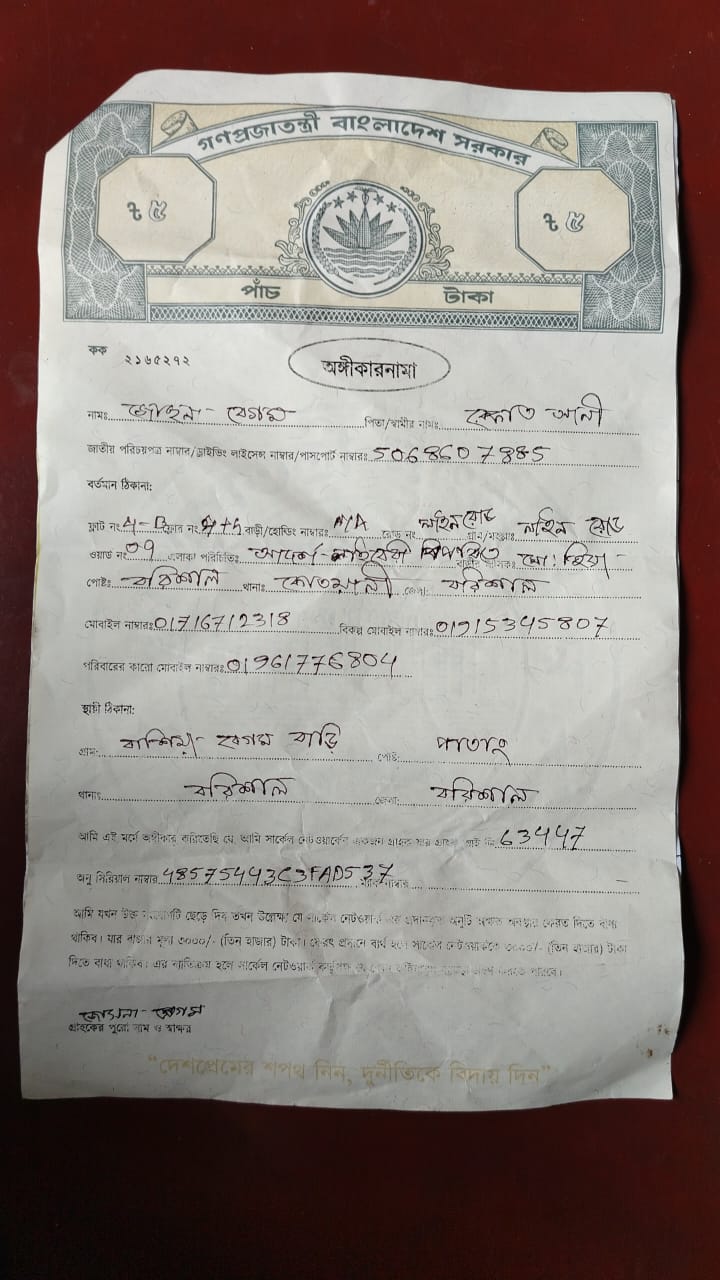 গণপ্রজাতন্ত্রী বাংলাদেশ সরকার
৳ ৫ ৳ ৫
পাঁচ টাকা
কক ২১৬৫২৭২
অঙ্গীকারনামা
নামঃ বেগম পিতা/স্বামীর নামঃ আলী
জাতীয় পরিচয়পত্র নাম্বার/ড্রাইভিং লাইসেন্স নাম্বার/পাসপোর্ট নাম্বারঃ 5068607885
বর্তমান ঠিকানা:
ফ্লাট নং A-B ফ্লোর নং বাড়ী/হোল্ডিং নাম্বারঃ N/A রোড নং লাইন রোড গ্রাম/মহল্লাঃ লাইন রোড
ওয়ার্ড নং 09 এলাকা পরিচিতিঃ বিপরীতে মো:
পোষ্টঃ বরিশাল থানাঃ কোতয়ালী জেলা বরিশাল
মোবাইল নাম্বারঃ 01716712318 বিকল্প মোবাইল নাম্বারঃ 01915345807
পরিবারের কারো মোবাইল নাম্বারঃ 01961776804
স্থায়ী ঠিকানা:
গ্রাম: বাড়ি পোষ্ট:
থানাঃ বরিশাল জেলা: বরিশাল
আমি এই মর্মে অঙ্গীকার করিতেছি যে, আমি সার্কেল নেটওয়ার্কের একজন গ্রাহক যার গ্রাহক আই ডি: 63447
অনু সিরিয়াল নাম্বার 48575443C3FAD537 নাম্বার –
আমি যখন উক্ত সংযোগটি ছেড়ে দিব তখন উল্লেখ্য যে সার্কেল নেটওয়ার্ক এর প্রদানকৃত অনুটি অক্ষত অবস্থায় ফেরত দিতে বাধ্য
থাকিব। যার বাজার মূল্য ৩০০০/- (তিন হাজার) টাকা। ফেরৎ প্রদানে ব্যর্থ হলে সার্কেল নেটওয়ার্ককে ৩০০০/- (তিন হাজার) টাকা
দিতে বাধ্য থাকিব। এর ব্যতিক্রম হলে সার্কেল নেটওয়ার্ক কর্তৃপক্ষ করতে পারবে।
জোসনা বেগম
গ্রাহকের পুরো নাম ও স্বাক্ষর
“দেশপ্রেমের শপথ নিন, দুর্নীতিকে বিদায় দিন”